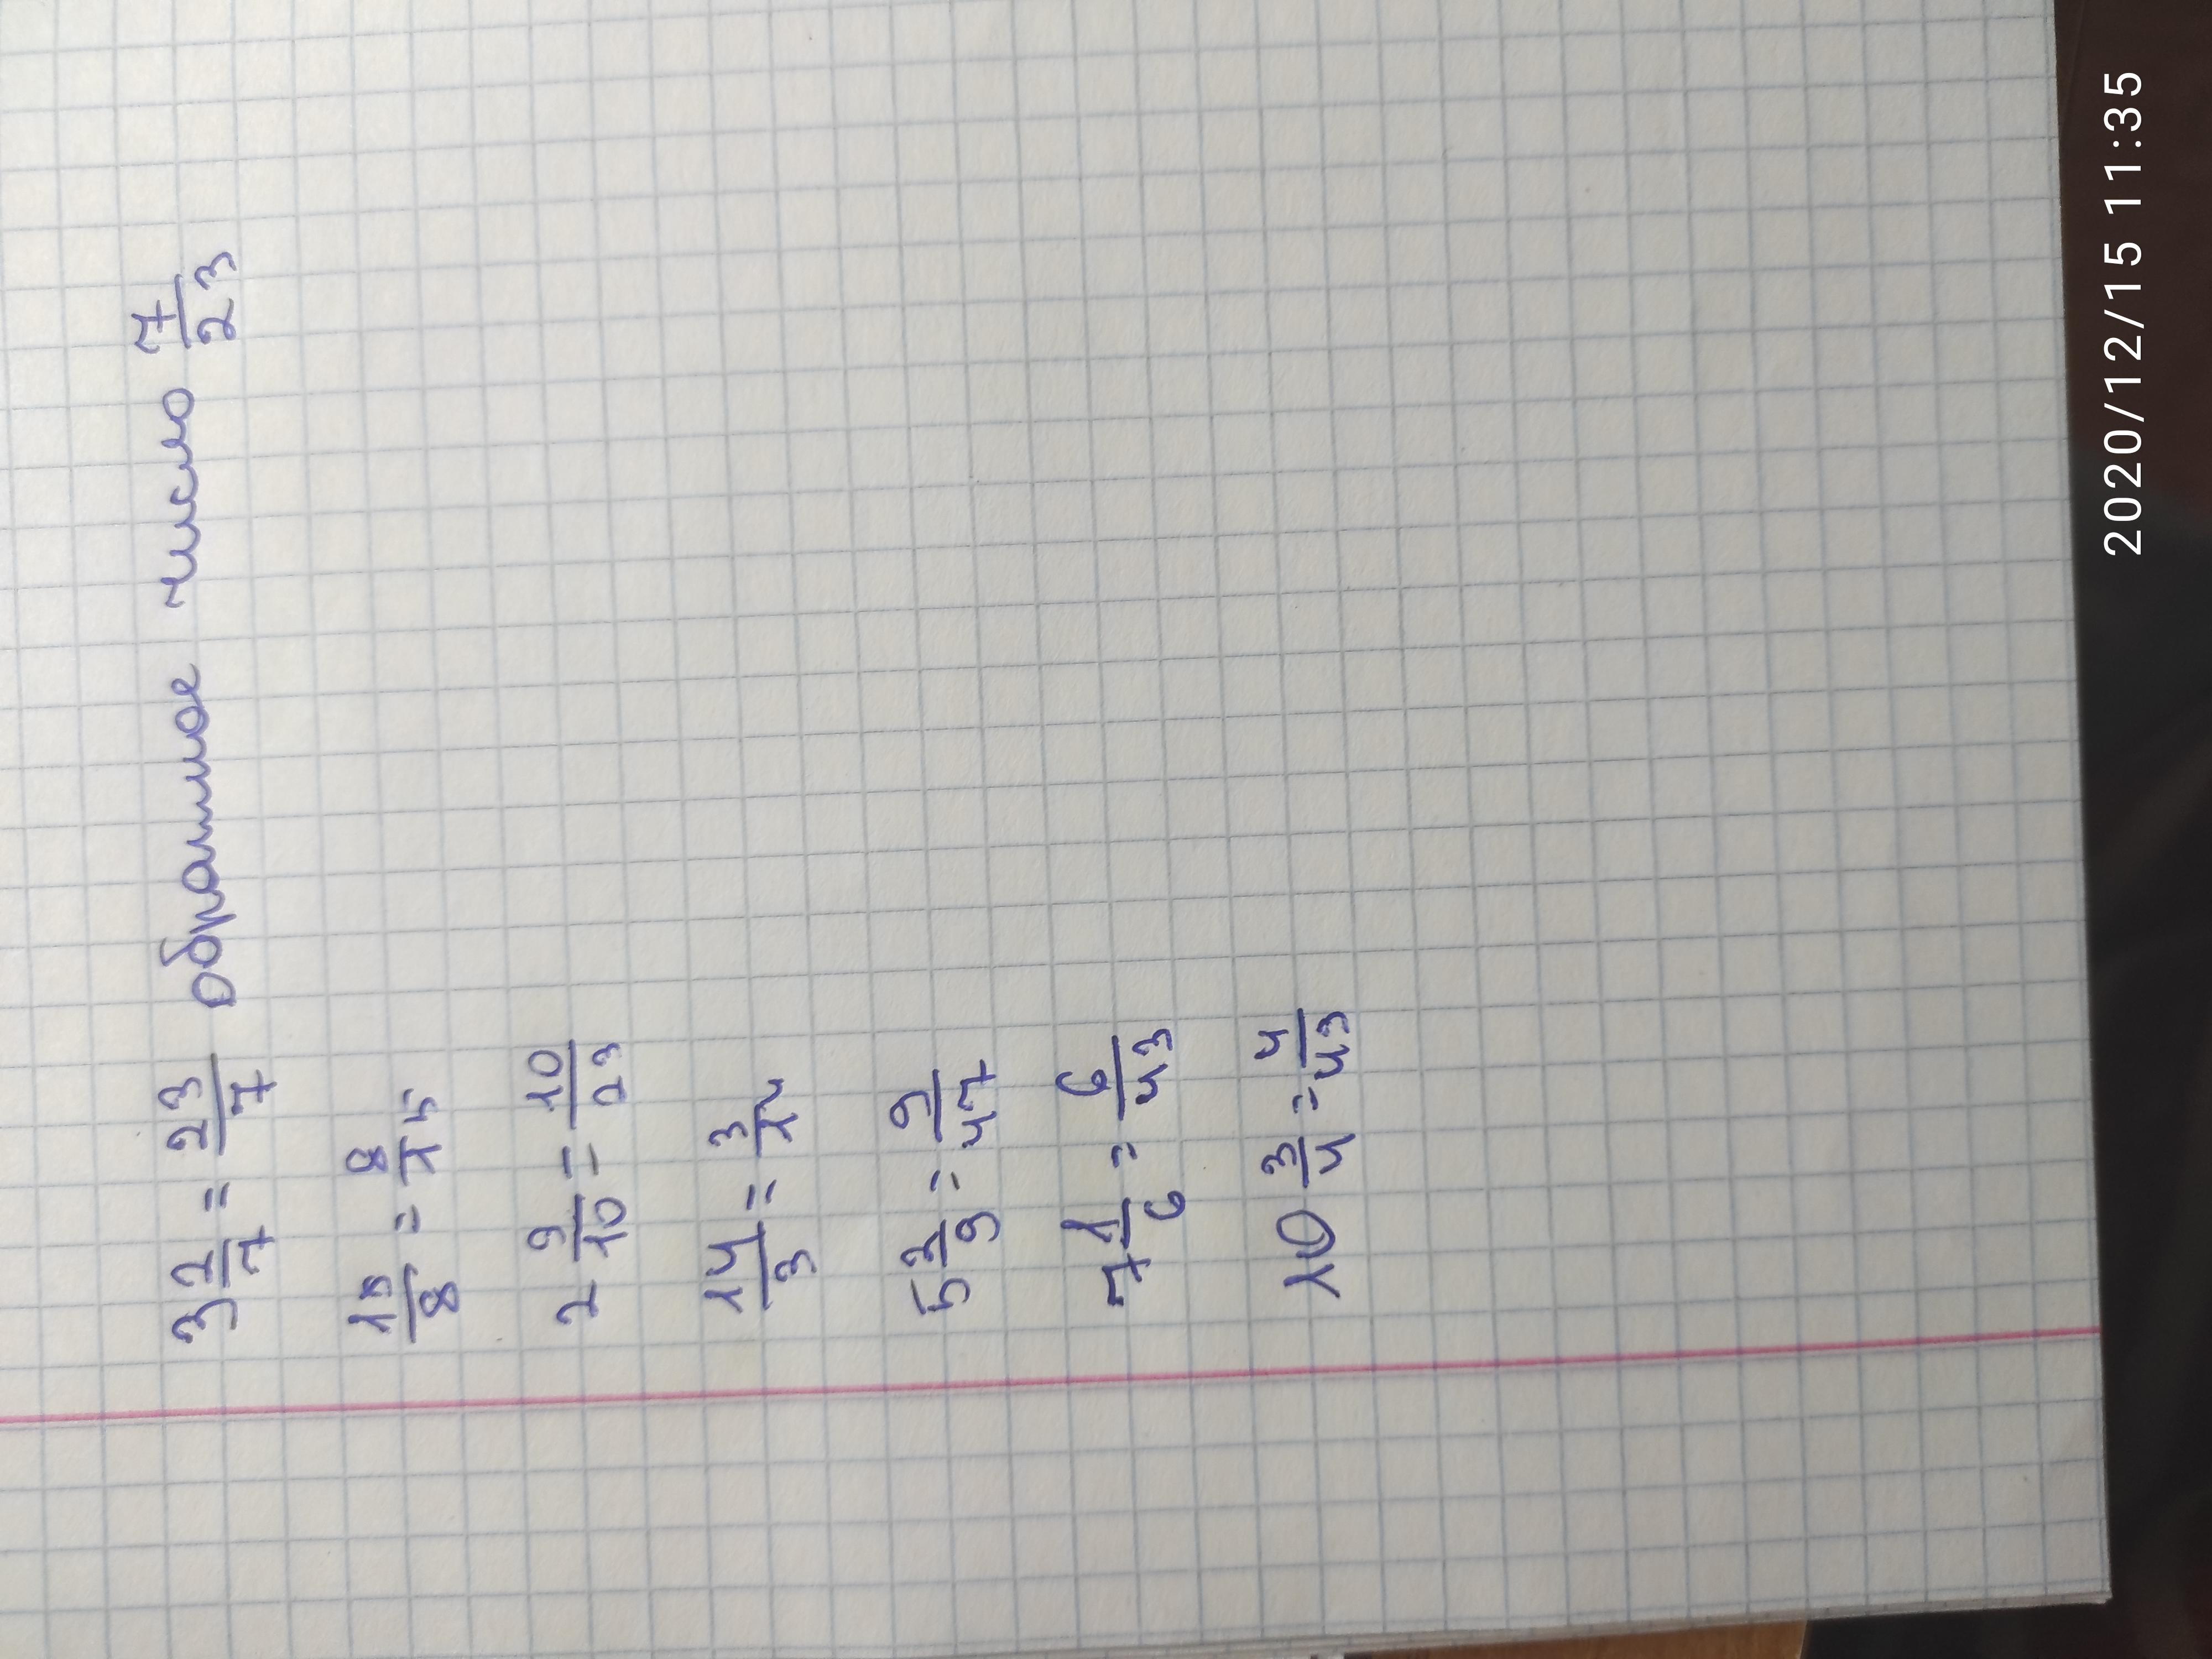 3 2/7 = 23/7 обратное число 7/23
15/8 = 8/15
2 9/10 = 10/29
14/3 = 3/14
5 2/9 = 9/47
7 1/6 = 6/43
10 3/4 = 4/43
2020/12/15 11:35